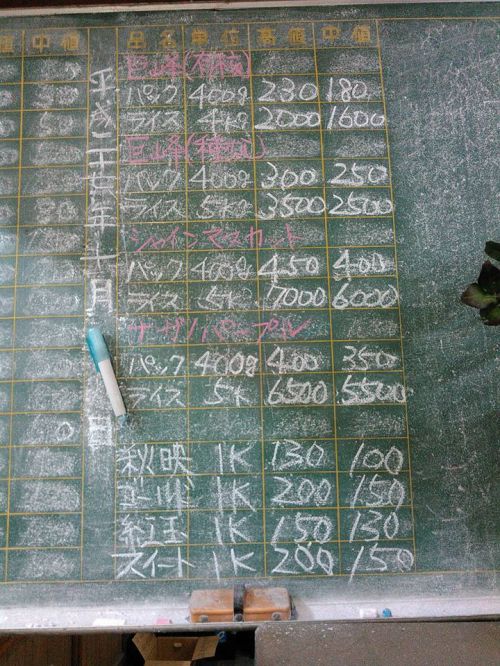 中値
品名 単位 高値 中値
平成二十七年十月
日
巨峰(有核)
パック 400g 230 180
ライス 4K 2000 1600
巨峰(種なし)
パック 400g 300 250
ライス 5K 3500 2500
シャインマスカット
パック 400g 450 400
ライス 5K 7000 6000
ナガノパープル
パック 400g 400 350
ライス 5K 6500 5500
秋映 1K 130 100
ゴールド 1K 200 150
紅玉 1K 150 130
スイート 1K 200 150